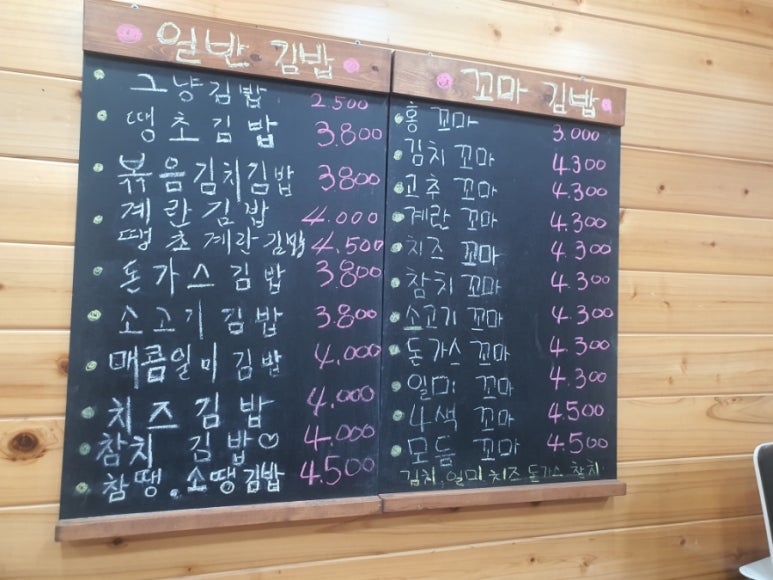 일반 김밥
그냥김밥 2500
땡초김밥 3.800
볶음김치김밥 3800
계란김밥 4.000
땡초계란김밥 4,500
돈가스김밥 3.800
소고기김밥 3.800
매콤일미김밥 4,000
치즈김밥 4.000
참치 김밥♡ 4.000
참땡.소땡김밥 4.500
꼬마 김밥
홍 꼬마 3.000
김치 꼬마 4.300
고추 꼬마 4.300
계란 꼬마 4.300
치즈 꼬마 4.300
참치 꼬마 4.300
소고기 꼬마 4.300
돈가스 꼬마 4.300
일미 꼬마 4.300
4색 꼬마 4.500
모듬 꼬마 4.500
김치, 일미 치즈 돈가스 참치